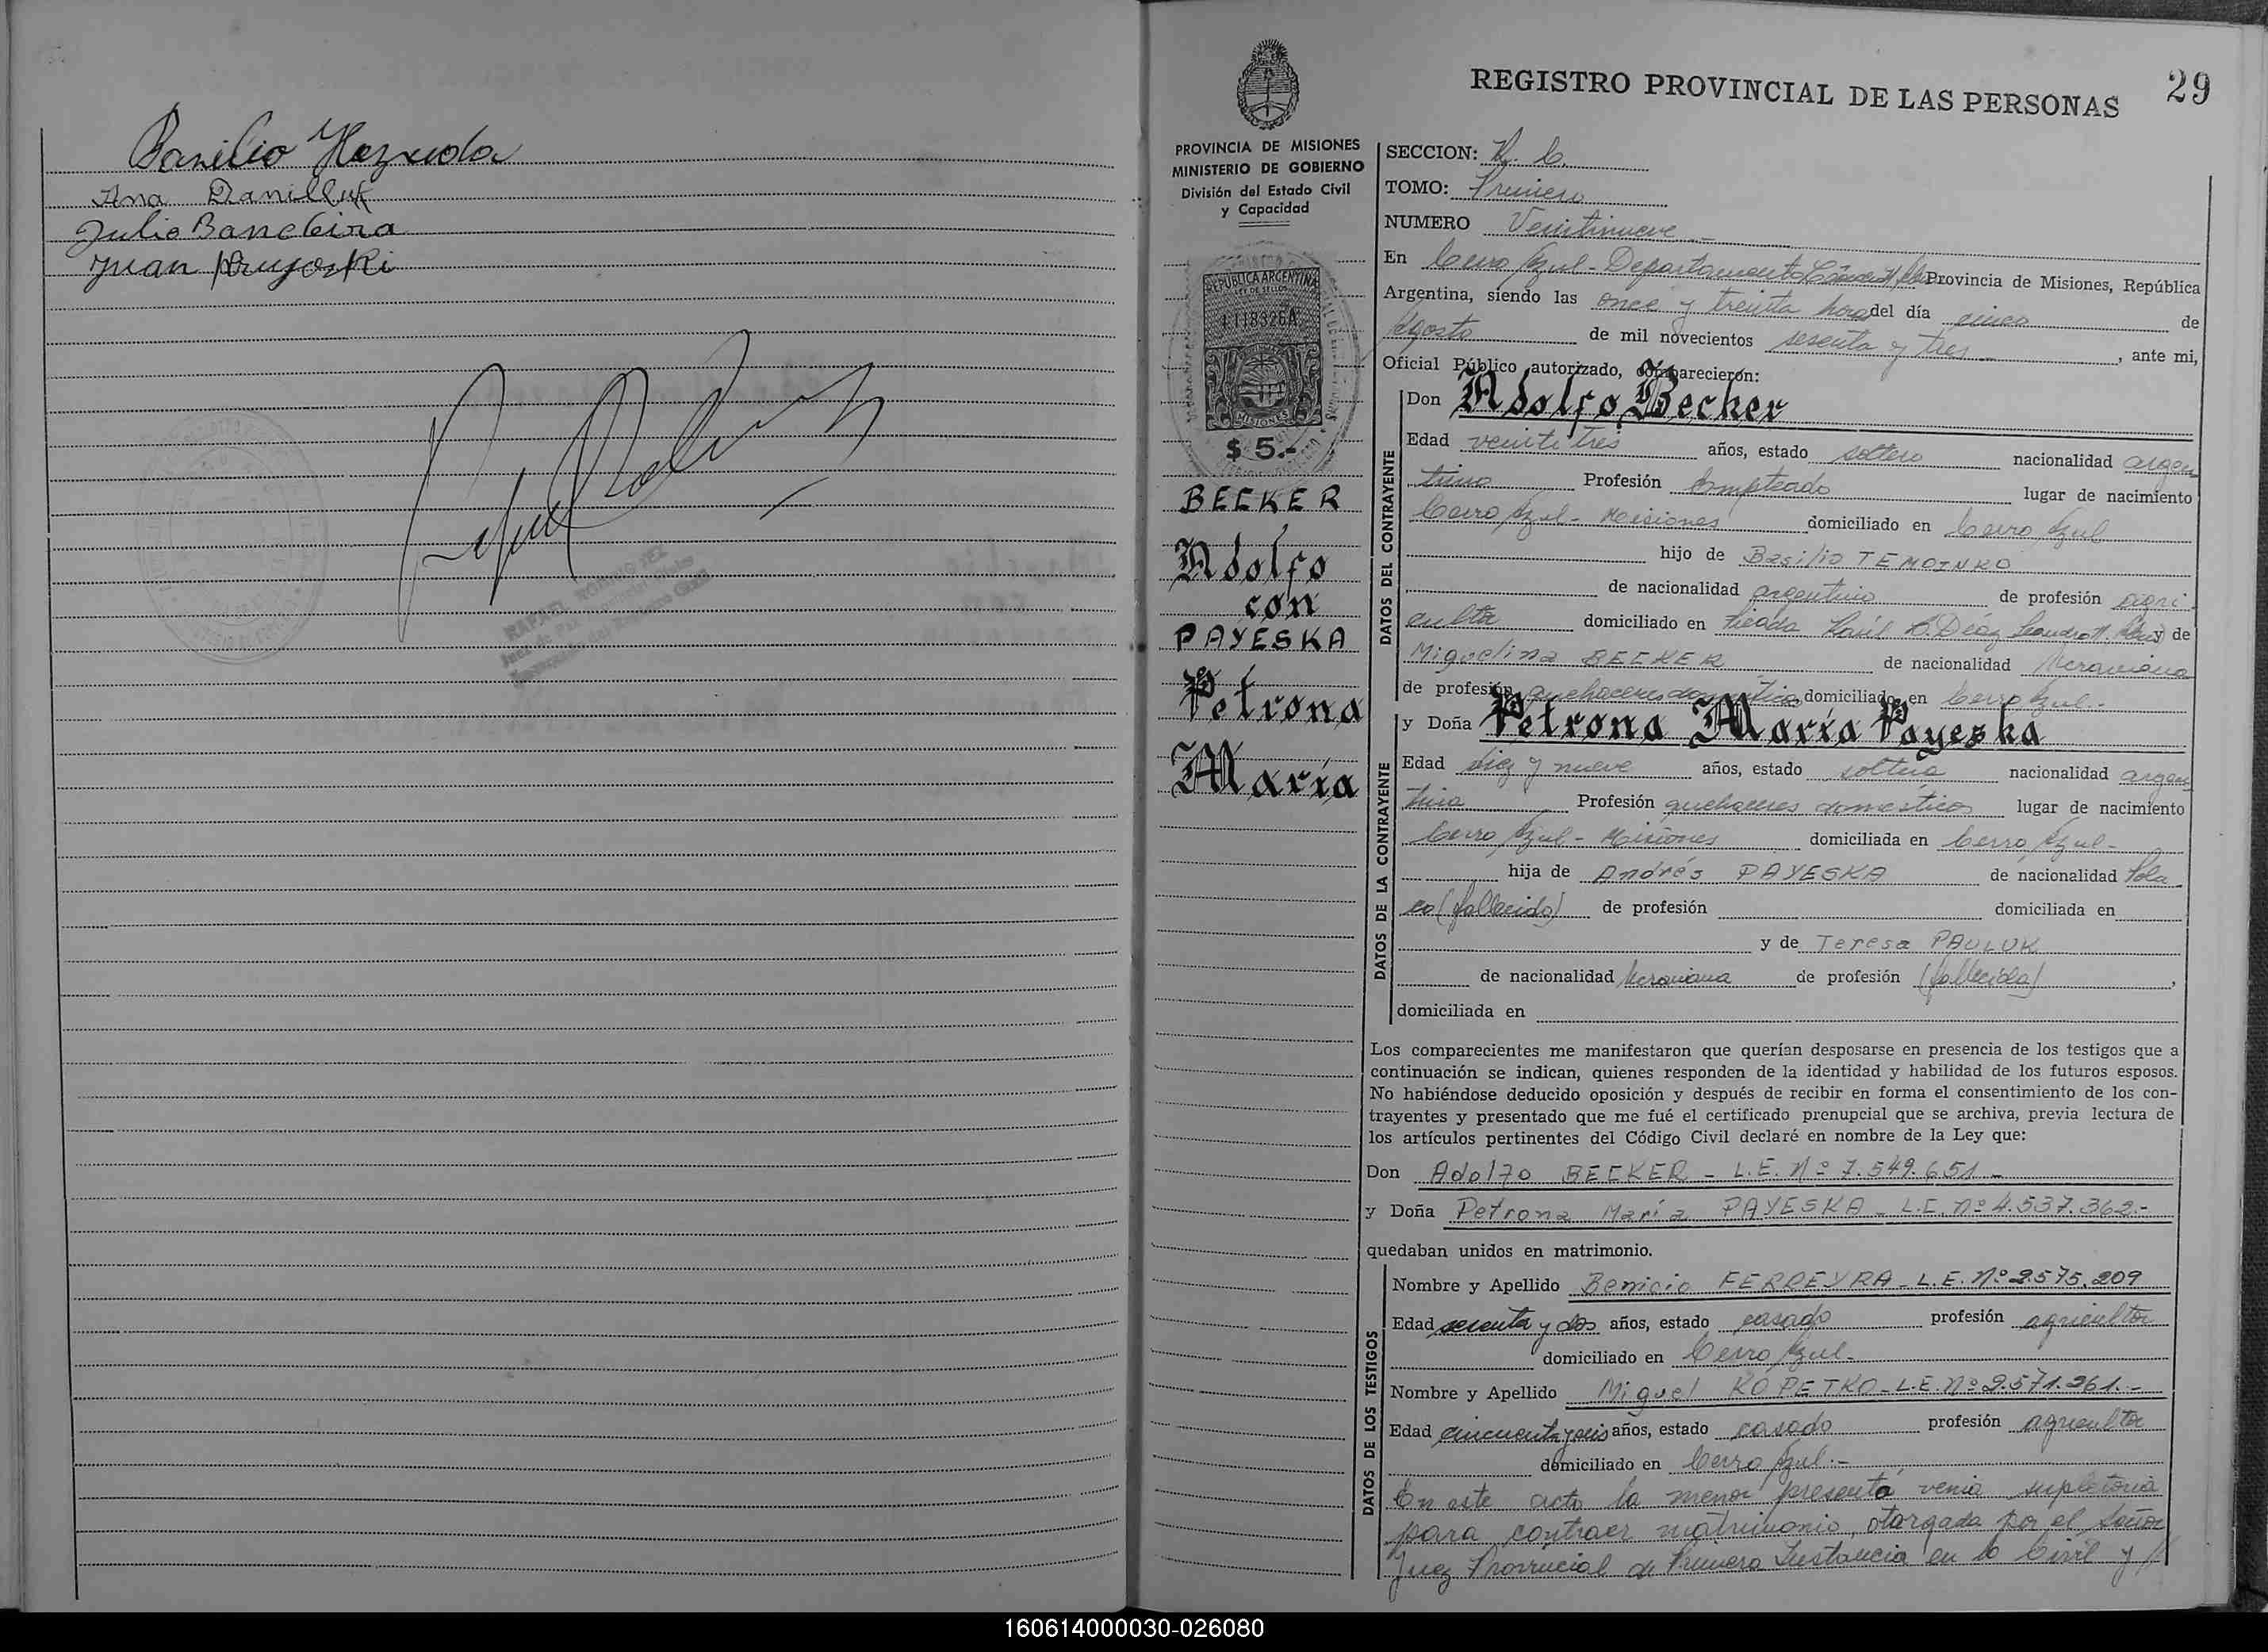 Ana Daniluk
Julio Bandeira
Juan
RAFAEL
REGISTRO PROVINCIAL DE LAS PERSONAS
29
PROVINCIA DE MISIONES
MINISTERIO DE GOBIERNO
División del Estado Civil
y Capacidad
REPUBLICA ARGENTINA
LEY DE SELLOS
MISIONES
$ 5.-
BECKER
Adolfo
con
PAYESKA
Petrona
María
SECCION: R. C.
TOMO: Primero
NUMERO Veintinueve
En Cerro Azul - Departamento Provincia de Misiones, República
Argentina, siendo las once y treinta horas del día cinco de
Agosto de mil novecientos sesenta y tres , ante mi,
Oficial Público autorizado, comparecieron:
DATOS DEL CONTRAYENTE
Don Adolfo Becker
Edad veintitres años, estado soltero nacionalidad argen
tino Profesión Empleado lugar de nacimiento
Cerro Azul - Misiones domiciliado en Cerro Azul
hijo de Basilio TEMOINKO
de nacionalidad argentino de profesión agri
cultor domiciliado en Picada Raúl B. Díaz Leandro N. Alem y de
Miguelina BECKER de nacionalidad Ucraniana
de profesión quehaceres domésticos domiciliado en Cerro Azul.-
DATOS DE LA CONTRAYENTE
y Doña Petrona María Payeska
Edad diez y nueve años, estado soltera nacionalidad argen
tina Profesión quehaceres domesticos lugar de nacimiento
Cerro Azul - Misiones domiciliada en Cerro Azul-
hija de Andrés PAYESKA de nacionalidad Pola
co (fallecido) de profesión domiciliada en
y de Teresa PAULUK
de nacionalidad Ucraniana de profesión (fallecida) ,
domiciliada en
Los comparecientes me manifestaron que querían desposarse en presencia de los testigos que a
continuación se indican, quienes responden de la identidad y habilidad de los futuros esposos.
No habiéndose deducido oposición y después de recibir en forma el consentimiento de los con-
trayentes y presentado que me fué el certificado prenupcial que se archiva, previa lectura de
los artículos pertinentes del Código Civil declaré en nombre de la Ley que:
Don Adolfo BECKER - L.E. Nº 7.549.651.-
y Doña Petrona María PAYESKA - L.E. Nº 4.537.362.-
quedaban unidos en matrimonio.
DATOS DE LOS TESTIGOS
Nombre y Apellido Benicio FERREYRA - L.E. Nº 2.575.209
Edad sesenta y dos años, estado casado profesión agricultor
domiciliado en Cerro Azul-
Nombre y Apellido Miguel KOPETKO - L.E. Nº 2.571.261.-
Edad cincuenta y seis años, estado casado profesión agricultor
domiciliado en Cerro Azul.-
En este acto la menor presenta venia supletoria
para contraer matrimonio, otorgada por el Señor
Juez Provincial de Primera Instancia en lo Civil y //
160614000030-026080